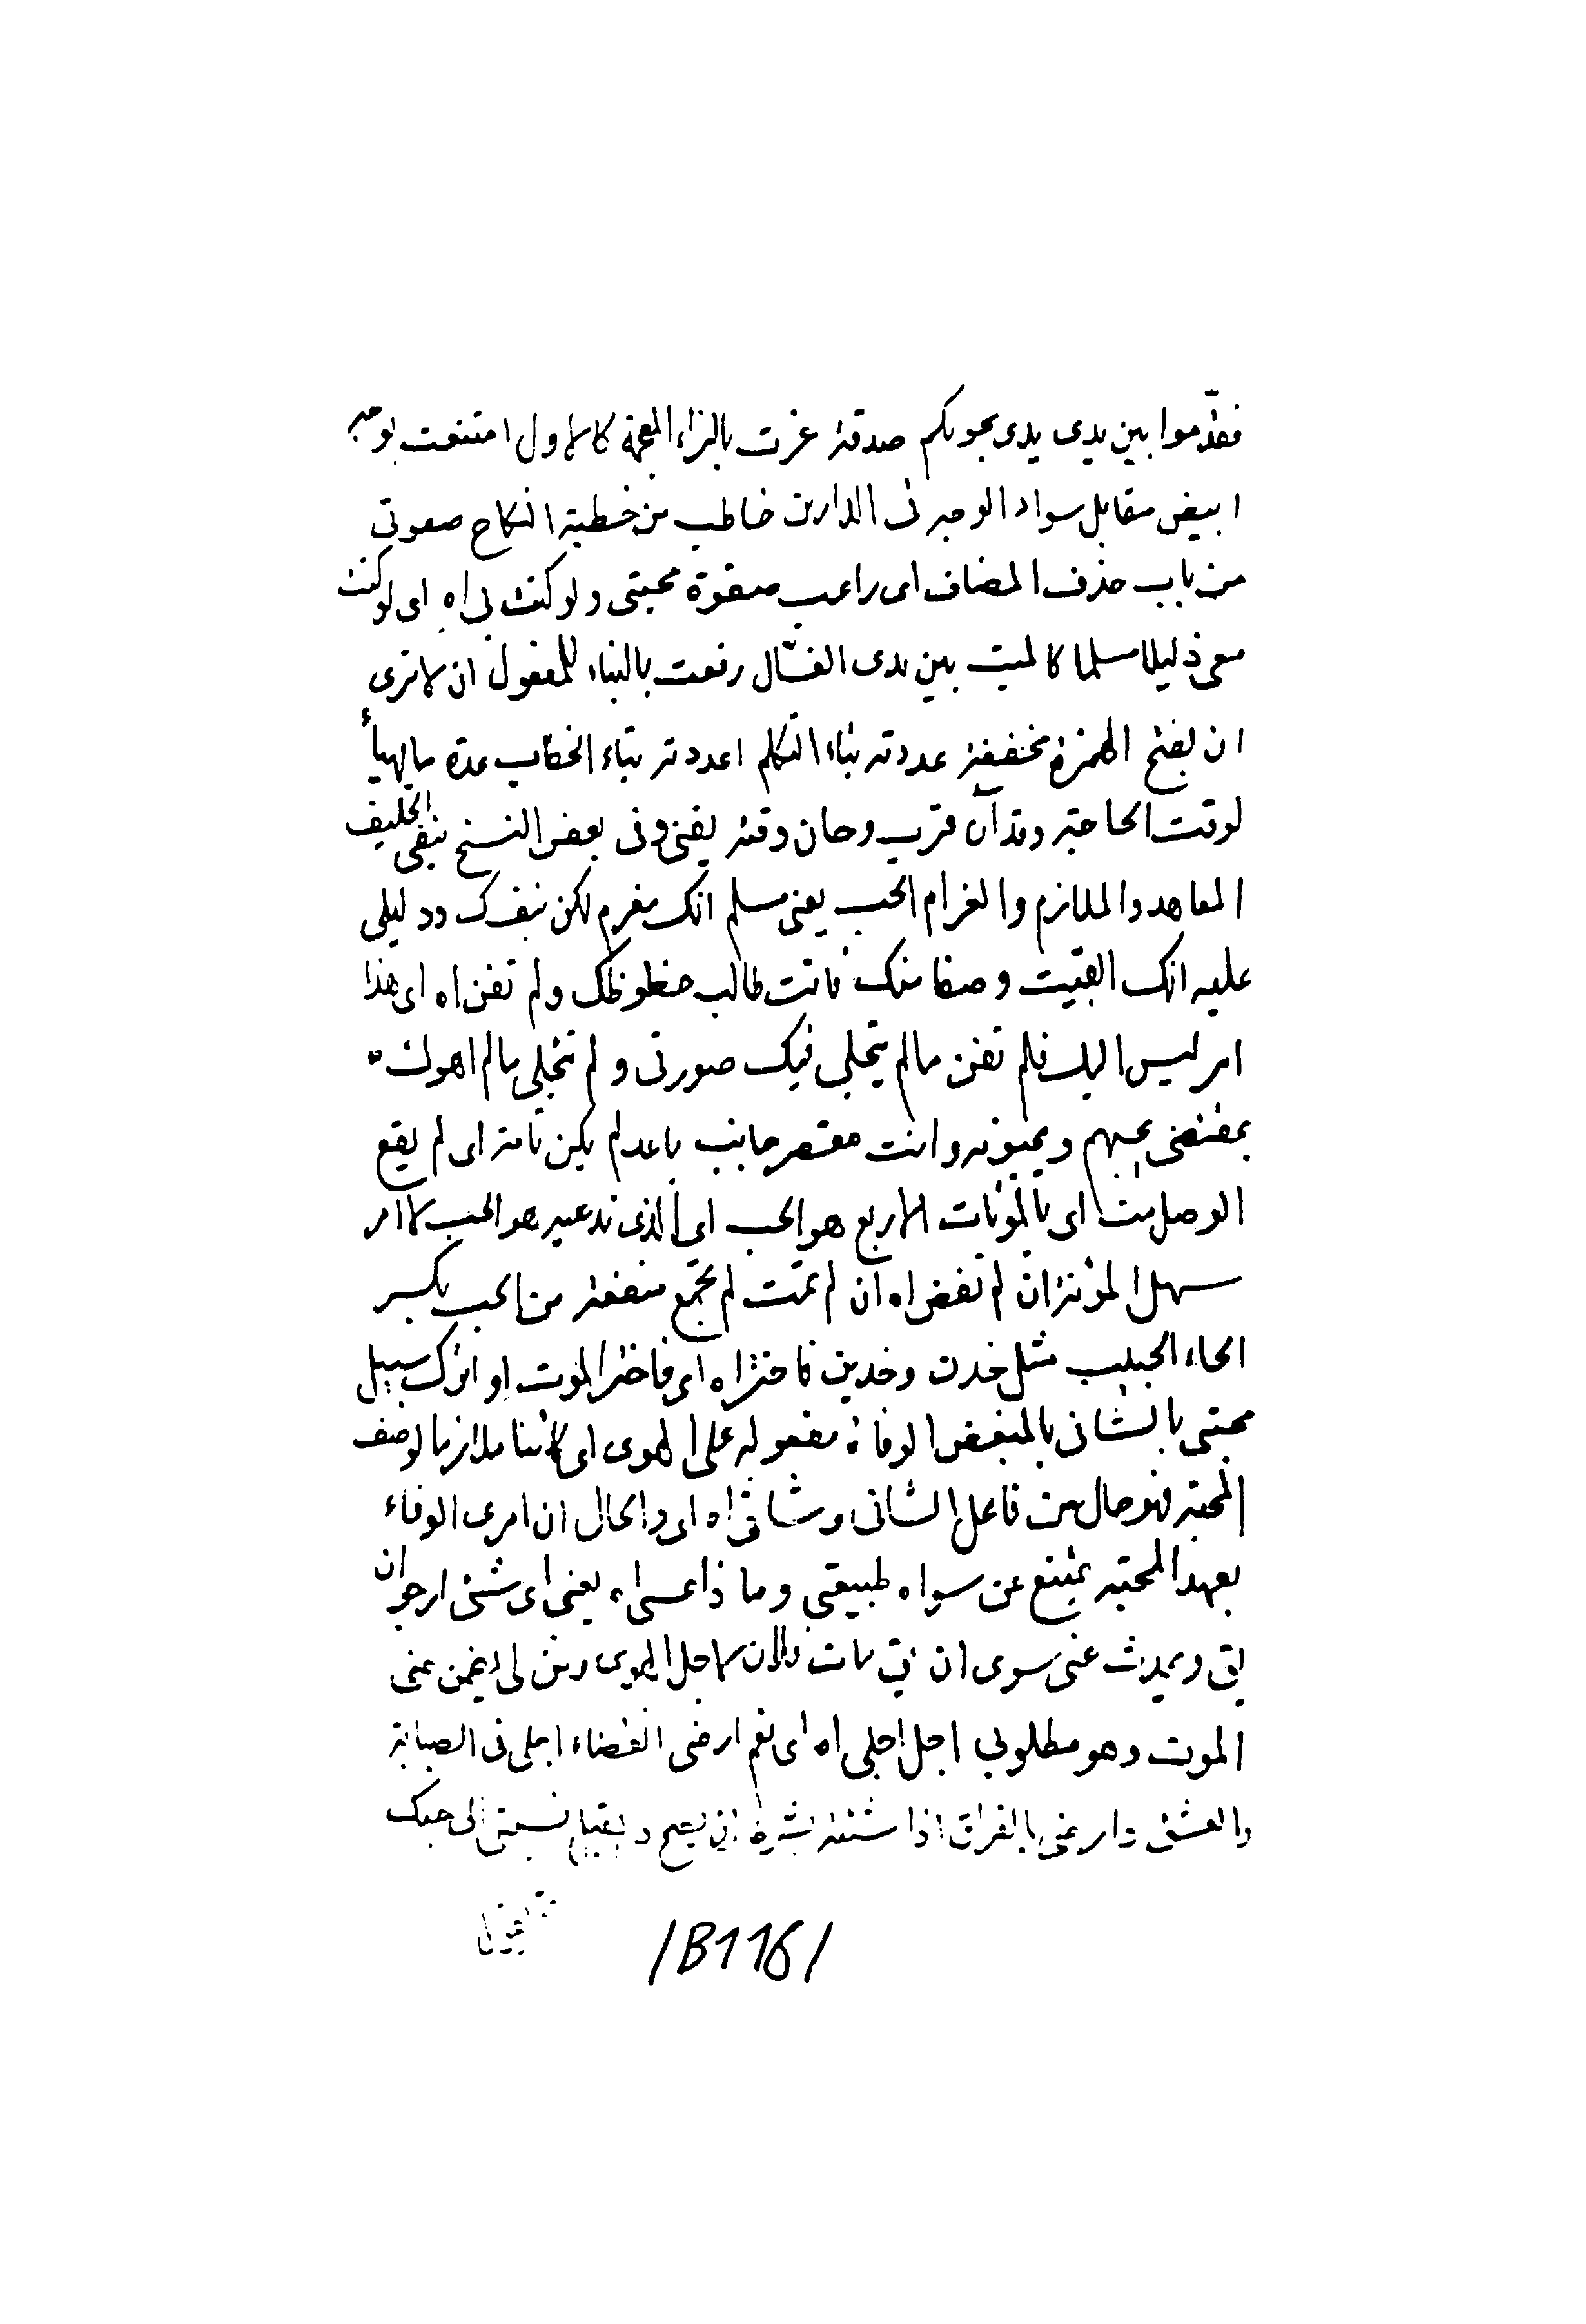 فقدّموا بين يدى يدى نجويكم صدقة عزت بالزاء المعجمة كالاول امتنعت بوجه
ابيض مقابل سواد الوجه فى الدارين خاطب من خطبة النكاح صفوتى
من باب حذف المضاف اى راغب صفوة محبتى ولو كنت بى اه اى لو كنت
معى ذليلا مسلما كالميت بين يدى الغسّال رفعت بالبناء للمفعول ان لا ترى
ان بفتح الهمزة مخففة عددته بتاء التكلم اعددته بتاء الخطاب عدة ما يهيأ
لوقت الحاجة وقد آن قرب وحان وقته يفنى وفى بعض النسخ بنفى الحليف
المعاهد والملازم والغرام الحب يعنى مسلم انك مغرم لكن بنفسك ودليلى
عليه انك ابقيت وصفا منك فانت طالب حظوظك ولم تفن اه اى هذا
امر ليس اليك فلم تفن مالم يتجلى فيك صورتى ولم تتجلى مالم اهواك
بمقتضى يحبهم ويحبونه وانت مقتصر جانب باعد لم يكن تامة اى لم يقع
الوصل مت اى بالموتات الاربع هو الحب اى الذى تدعيه هو الحب لا امر
سهل المؤنة ان لم تقض اه ان لم تمت لم تجتمع منفعة من الحب بكسر
الحاء الحبيب مثل خدن وخدين فاختر اه اى فاختر الموت او اترك سبيل
محبتى بالشانى بالمبغض الوفاة مفعوله على الهوى اى كائنا ملازما لوصف
المحبة فهو حال من فاعل الشانى وشانى اه اى والحال ان امرى الوفاء
بعهد المحبة يمتنع عن سواه طبيعتى وما ذا عسى اه يعنى اى شئ ارجو ان
يق ويحدث عنى سوى ان يق مات فلان لاجل الهوى ومن لى يضمن عنى
الموت وهو مطلوبى اجل اجلى اه اى نعم ارضى انقضاء اجلى فى الصبابة
والعشق وارغى بالفراق اذا شئته بشرط ان يصح ويقبل نسبتى الى حبك
/B116/